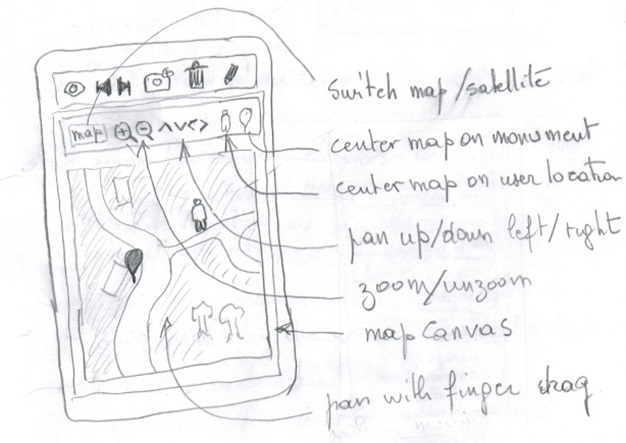 Switch map/satellite
map
center map on monument
center map on user location
pan up/down left/right
zoom/unzoom
map canvas
pan with finger drag